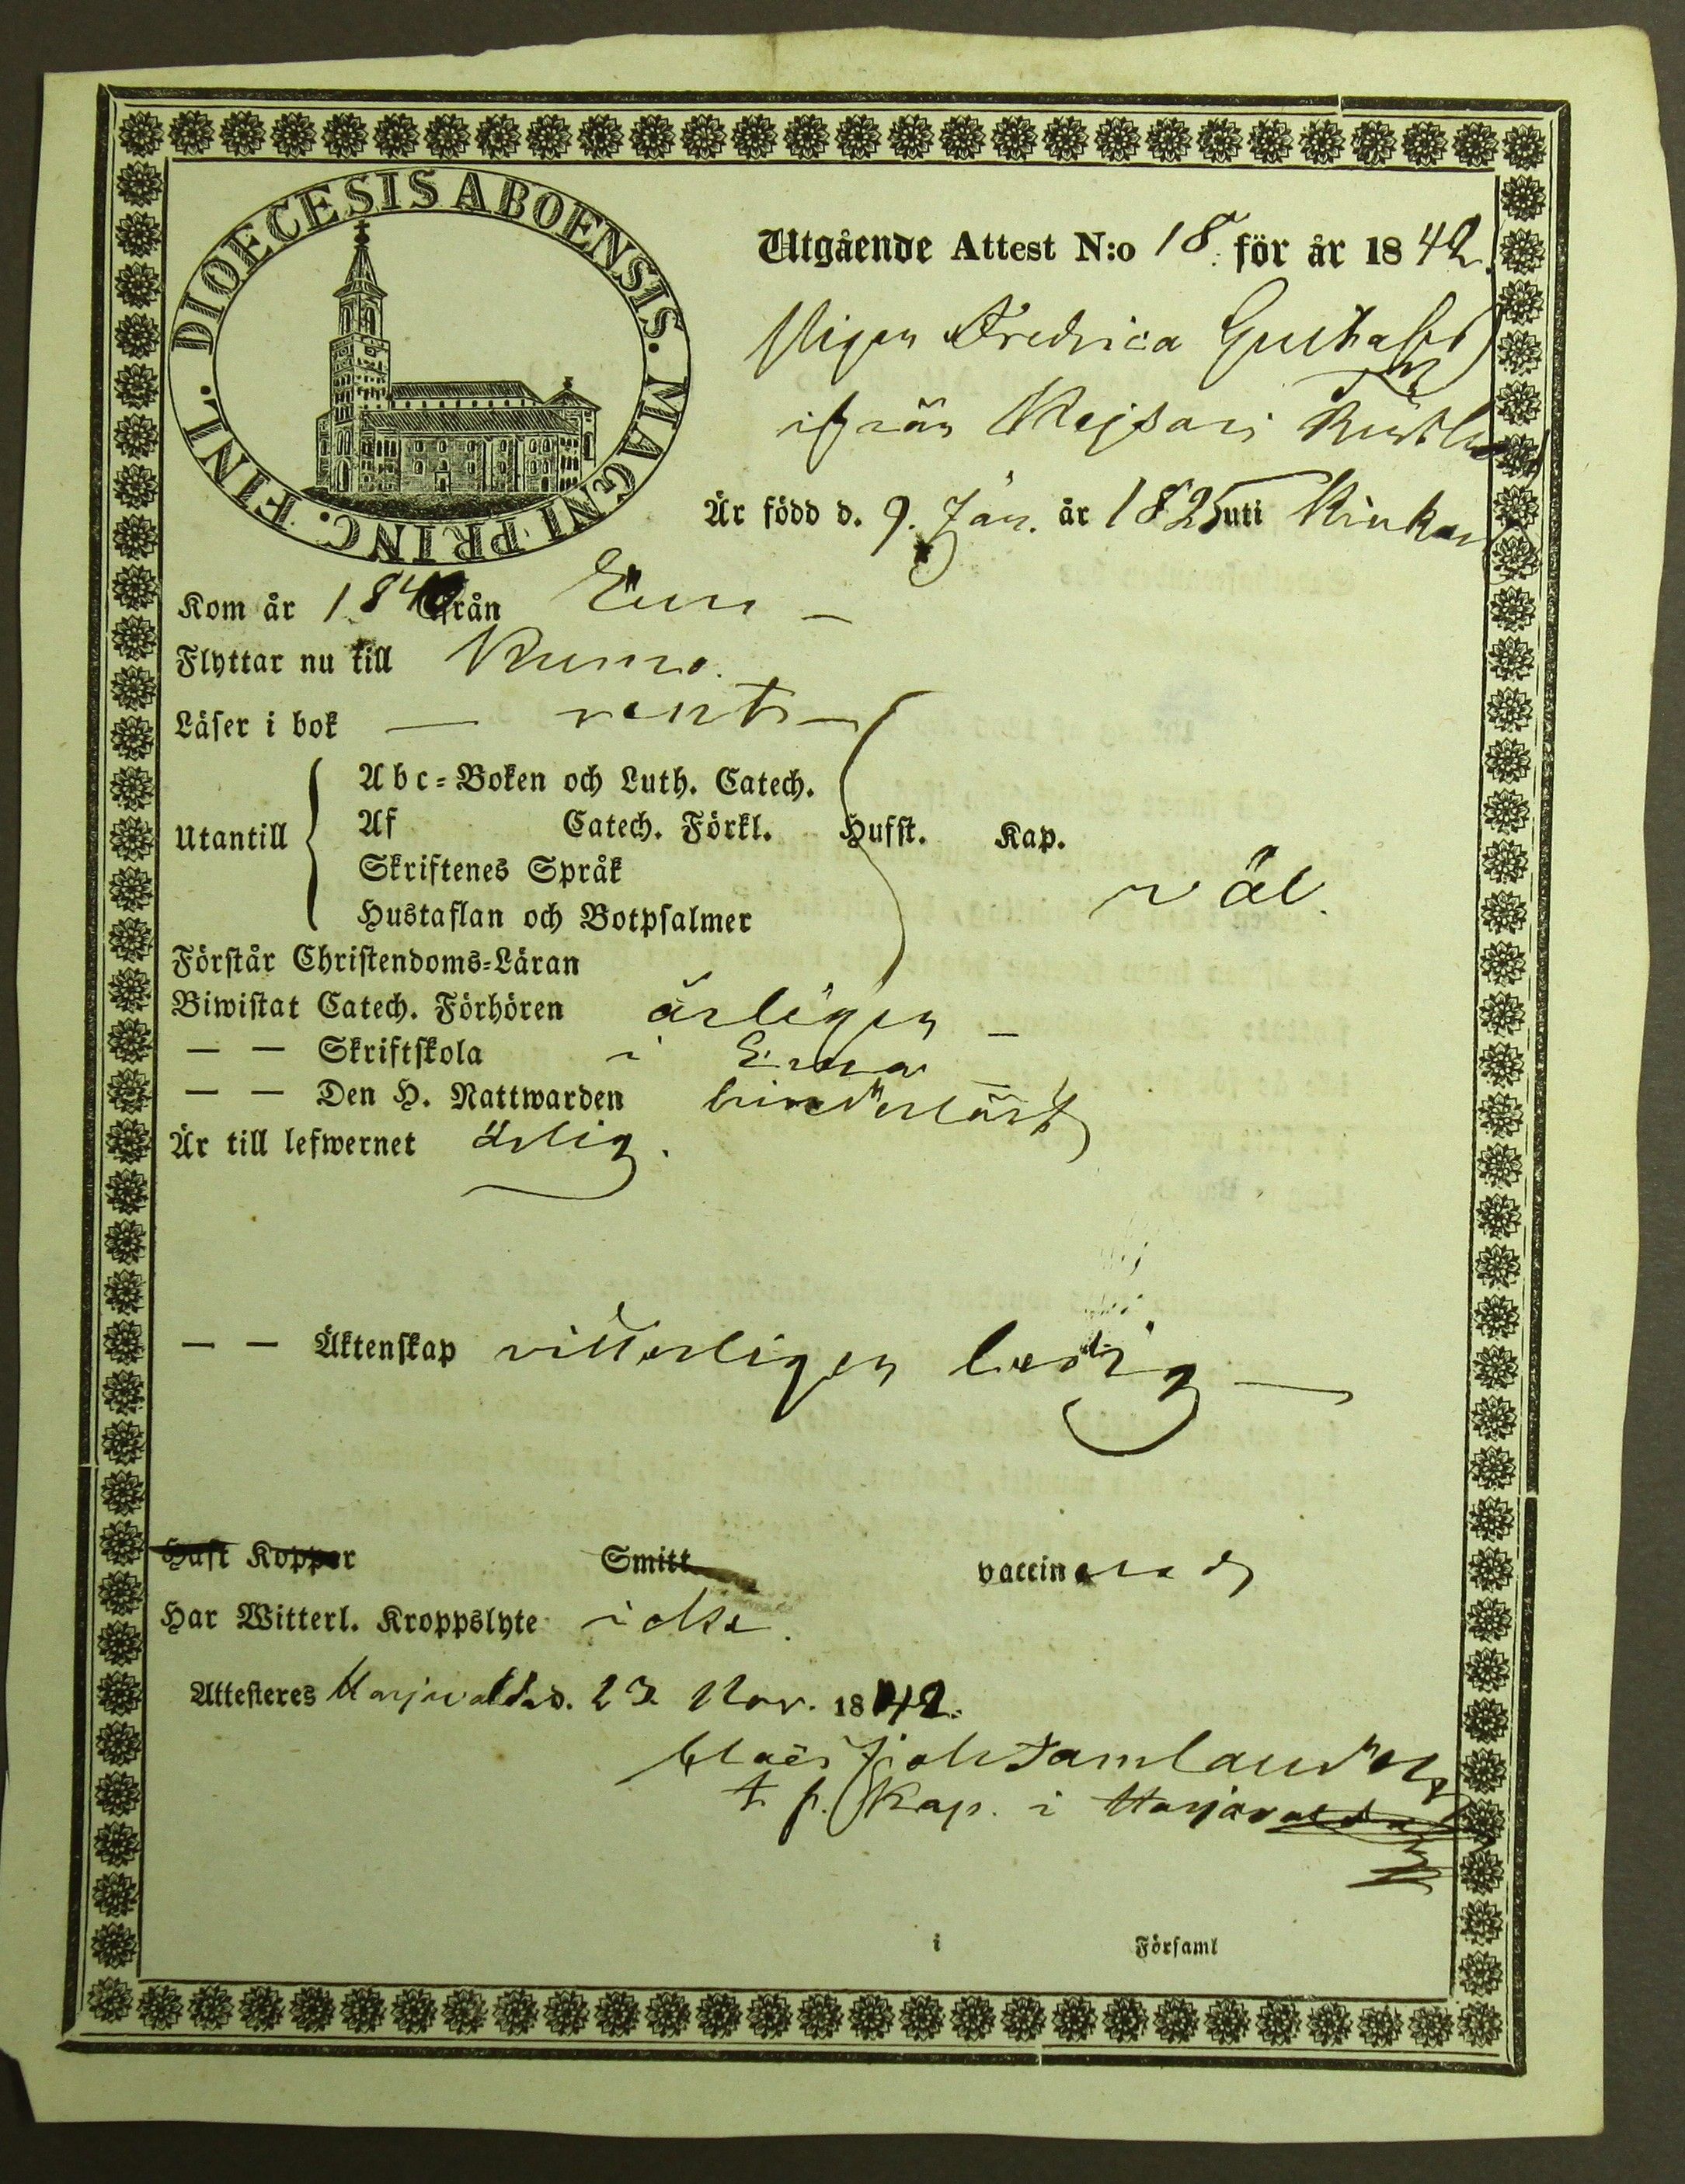 DIOECESIS ABOENSIS. MAGNI PRINC. FINL.
Utgående Attest N:o 18. för år 1842.
Pigan Fredrica Gustafsd:r
ifrån Kejsari
Är född d. 9. Jan. år 1825 uti Kiukais
Kom år 1840 ifrån Eura –
Flyttar nu till Kumo.
Läser i bok — rent —
Abc-Boken och Luth. Catech.
Utantill Af Catech. Förkl. Hufst. Kap.
väl.
Skriftenes Språk
Hustaflan och Botpsalmer
Förstår Christendoms-Läran
Biwistat Catech. Förhören årligen –
— — Skriftskola i Eura
— — Den H. Nattwarden hinderlöst
Är till lefwernet ärlig.
— — Äktenskap vitterligen ledig —
Haft Kopper Smitt vaccinerad
Har Witterl. Kroppslyte icke.
Attesteres Harjavalta d. 23 Nov. 1842.
Claës Joh Tamlander
t. f. Kap. i Harjavalta
i Församl